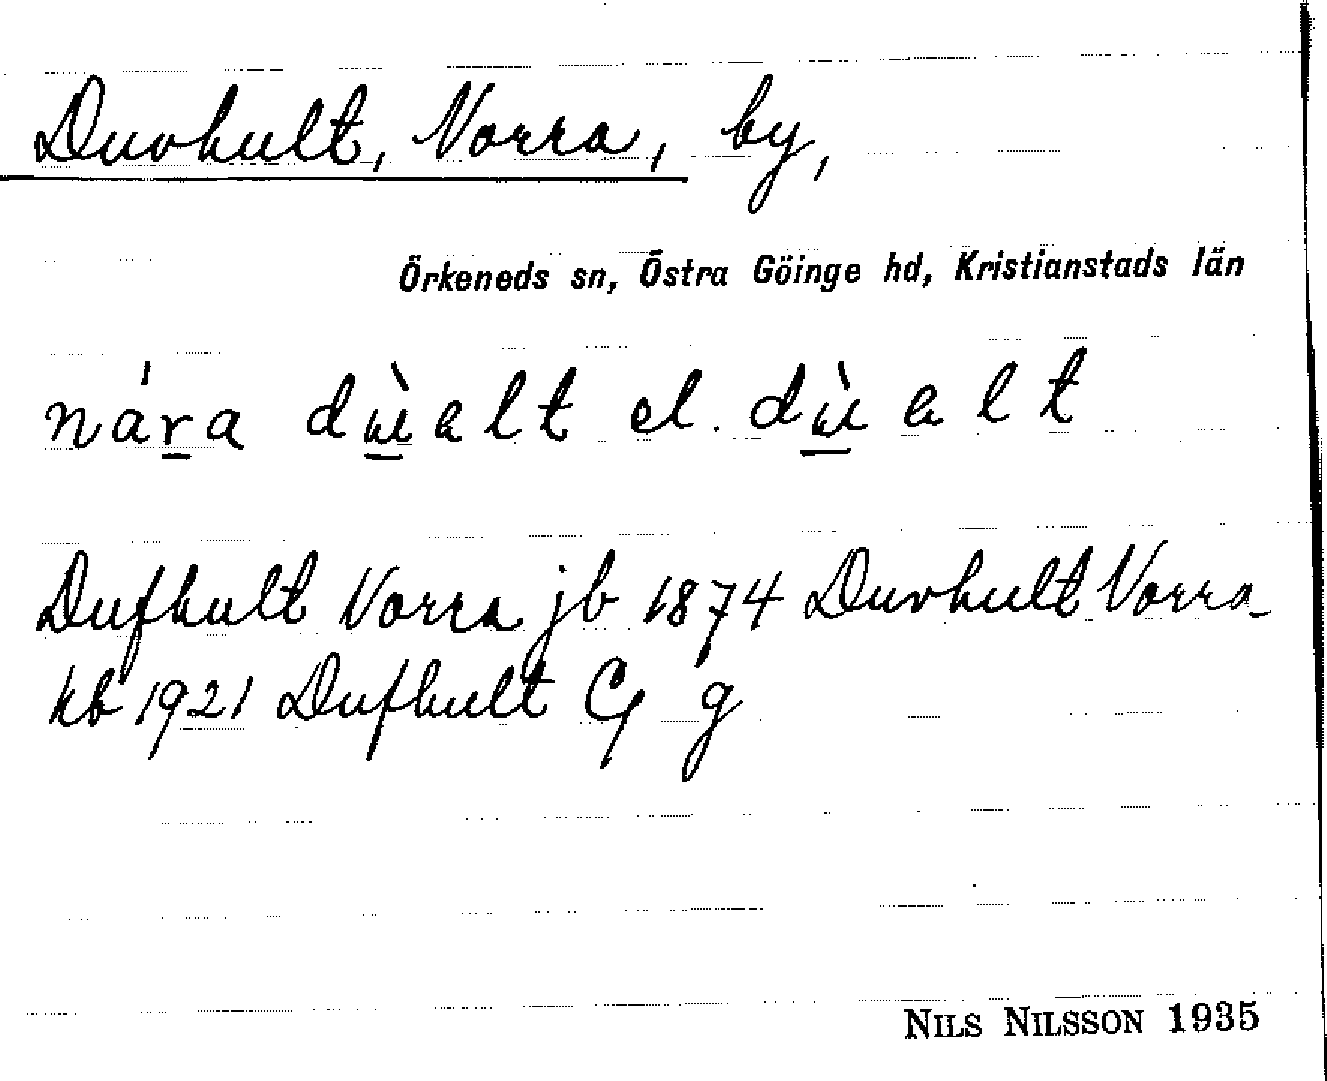 Duvhult, Norra, by,
Örkeneds sn, Östra Göinge hd, Kristianstads län
nára dùalt el. dùalt
Dufhult Norra jb 1874 Duvhult Norra
kb 1921 Dufhult G g
NILS NILSSON 1935